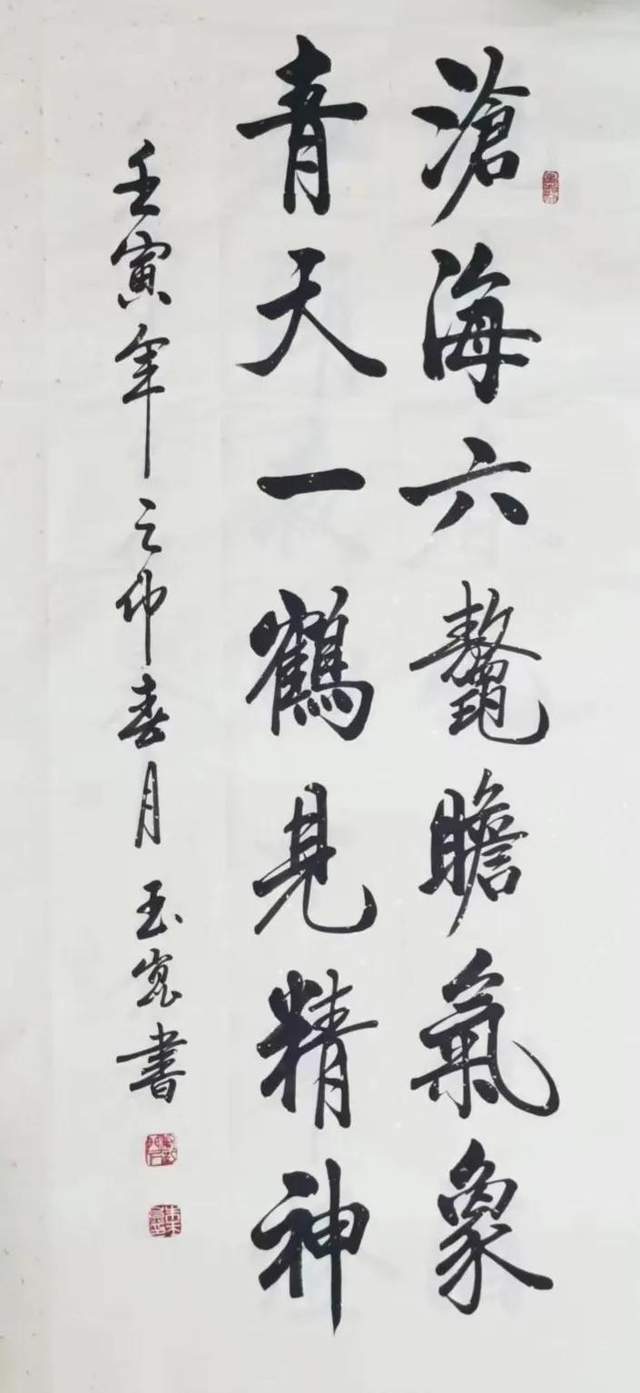 滄海六鼇瞻氣象
青天一鶴見精神
壬寅年之仲春月玉崑書